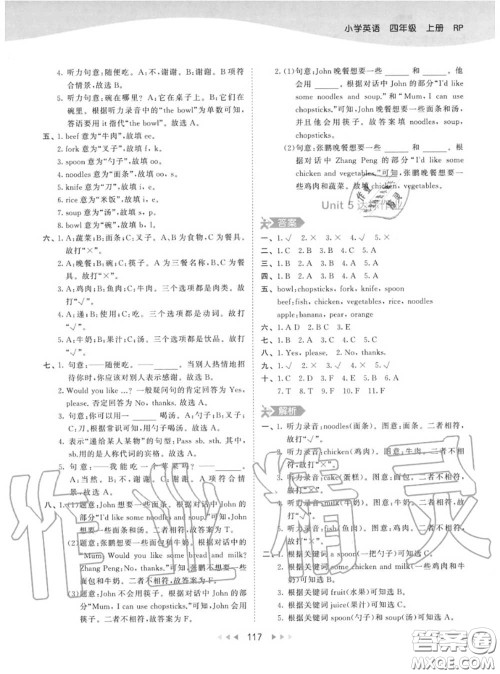 小学英语 四年级 上册 RP
4. 听力句意:随便吃。A:不,谢谢。B:谢谢。B项符
合情景,故选B。
5. 听力句意:碗在哪里?A:它在桌子上。B:它们在
碗里。根据听力录音中的“the bowl”为单数可知,
答语要用it指代“the bowl”。故选A。
五、1. beef 意为“牛肉”,故填 ee。
2. fork 意为“叉子”,故填 f, k。
3. spoon 意为“勺子”,故填 oo。
4. noodles 意为“面条”,故填 oo。
5. knife 意为“刀”,故填 i, e。
6. rice 意为“米饭”,故填 i, e。
7. soup 意为“汤”,故填 ou。
8. bowl 意为“碗”,故填 b, l。
六、1. A:蔬菜;B:面条;C:叉子。A、B为食物,C为餐具。
故打“×”。
2. A:晚餐;B:碗;C:筷子。A为三餐名称,B、C为餐具。
故打“×”。
3. A:鸡肉;B:鱼肉;C:牛肉。三个选项都是肉类。故打
“√”。
4. A:递;B:使用;C:喜欢。三个选项都是动词。故打
“√”。
5. A:牛奶;B:果汁;C:汤。三个选项都是饮品。故打
“√”。
七、1. 句意:——随便吃。——____。当别人热情地招
待你时,你应该对别人表示感谢。故选B。
2. Would you like …? 一般疑问句的肯定回答为 Yes,
please. 否定回答为 No, thanks. 故选C。
3. 句意:你可以用____喝汤。A:勺子;B:叉子;
C:刀。根据常识可知喝汤用勺子。故选A。
4. 表示“递给某人某物”的句型:Pass sb. sth. 其中,
sb.用的是人称代词的宾格。故选A。
5. 句意:——我能吃一个苹果吗?——____
A:当然。B:不,谢谢。A项符合情景,故选A。
八、1. (1)题意:John想要一些面条。根据对话中John的
部分“I'd like some noodles and soup.”可知,John想要
面条和汤。二者相符,故答案为T。
(2)题意:张鹏想要一些面包和牛奶。根据对话中
的“Mum: Would you like some bread and milk?
Zhang Peng: No, thanks.”可知,张鹏不想要一些
面包和牛奶。二者不相符,故答案为F。
(3)题意:John不会用筷子。根据对话中John的部
分“Mum, I can use chopsticks.”可知,John会用筷
子。二者不相符,故答案为F。
2. (1)句意:John晚餐想要一些____和____。他
会用____。根据对话中John的部分“I'd like
some noodles and soup.”和“Mum, I can use
chopsticks.”可知,John晚餐想要一些面条和汤,
并且他会用筷子。故答案填 noodles,
soup, chopsticks。
(2)句意:张鹏晚餐想要一些____和____。根
据对话中Zhang Peng的部分“I'd like some
chicken and vegetables.”可知,张鹏晚餐想要一
些鸡肉和蔬菜。故填
Unit 5
答案
一、1. √ 2. × 3. × 4. × 5. √
二、1. C 2. A 3. B 4. C 5. A
三、1. √ 2. × 3. √ 4. × 5. √
四、1. B 2. B 3. A 4. B 5. A
五、bowl: chopsticks, fork, knife, spoon
beef: fish, chicken, vegetables, rice, noodles
apple: banana, pear, orange
六、1. A D 2. B C 3. E
七、1. B 2. A 3. B 4. C 5. C
八、1. Yes, please. 2. No, thanks.
九、1. √ 2. × 3. √ 4. √ 5. ×
十、1. C 2. D 3. F 4. G 5. B 6. E
7. I 8. A 9. H
解析
一、1. 听力录音:noodles(面条)。图意:面条。二者相符,
故打“√”。
2. 听力录音:chicken(鸡肉)。图意:牛肉。二者不相
符,故打“×”。
3. 听力录音:cake(蛋糕)。图意:二者不相符,故
打“×”。
4. 听力录音:milk(牛奶)。图意:二者不相符,
故打“×”。
5. 听力录音:fish(鱼肉)。图意:鱼肉。二者相符,故
打“√”。
二、1. 根据关键词 a spoon(一把勺子)可知选C。
2. 根据关键词
3. 根据关键词 fruit(水果)可知选B。
4. 根据关键词 juice(果汁)可知选C。
5. 根据关键词 soup(汤)可知选A。
117
作业精灵
答案圈